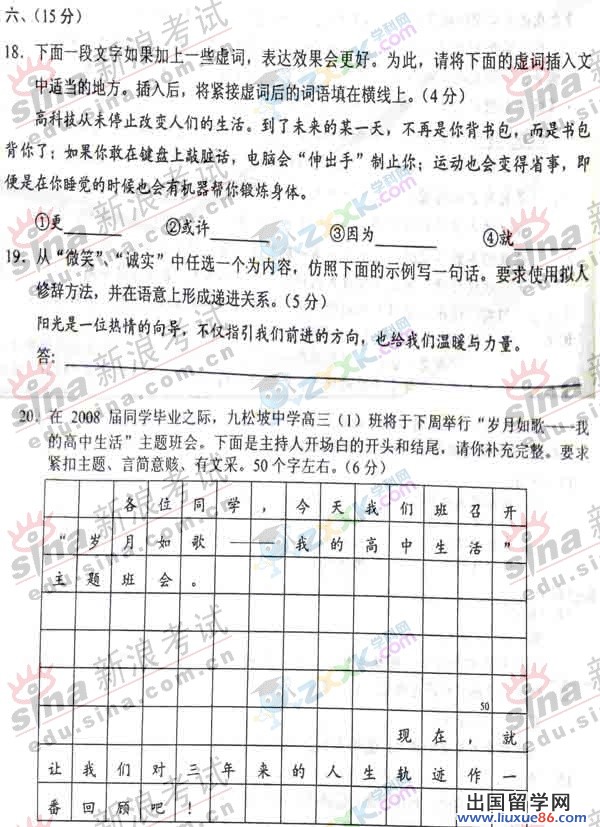 六、（15分）
18. 下面一段文字如果加上一些虚词，表达效果会更好。为此，请将下面的虚词插入文
中适当的地方。插入后，将紧接虚词后的词语填在横线上。（4分）
高科技从未停止改变人们的生活。到了未来的某一天，不再是你背书包，而是书包
背你了；如果你敢在键盘上敲脏话，电脑会“伸出手”制止你；运动也会变得省事，即
便是在你睡觉的时候也会有机器帮你锻炼身体。
①更______ ②或许______ ③因为______ ④就______
19. 从“微笑”、“诚实”中任选一个为内容，仿照下面的示例写一句话。要求使用拟人
修辞方法，并在语意上形成递进关系。（5分）
阳光是一位热情的向导，不仅指引我们前进的方向，也给我们温暖与力量。
答：
20. 在 2008 届同学毕业之际，九松坡中学高三（1）班将于下周举行“岁月如歌——我
的高中生活”主题班会。下面是主持人开场白的开头和结尾，请你补充完整。要求
紧扣主题、言简意赅、有文采。50个字左右。（6分）
各位同学，今天我们班召开
“岁月如歌——我的高中生活”
主题班会。
50
现在，就
让我们对三年来的人生轨迹作一
番回顾吧！
sina 新浪考试
edu.sina.com.cn
ZXXK.COM
学科网
出国留学网
www.liuxue86.com